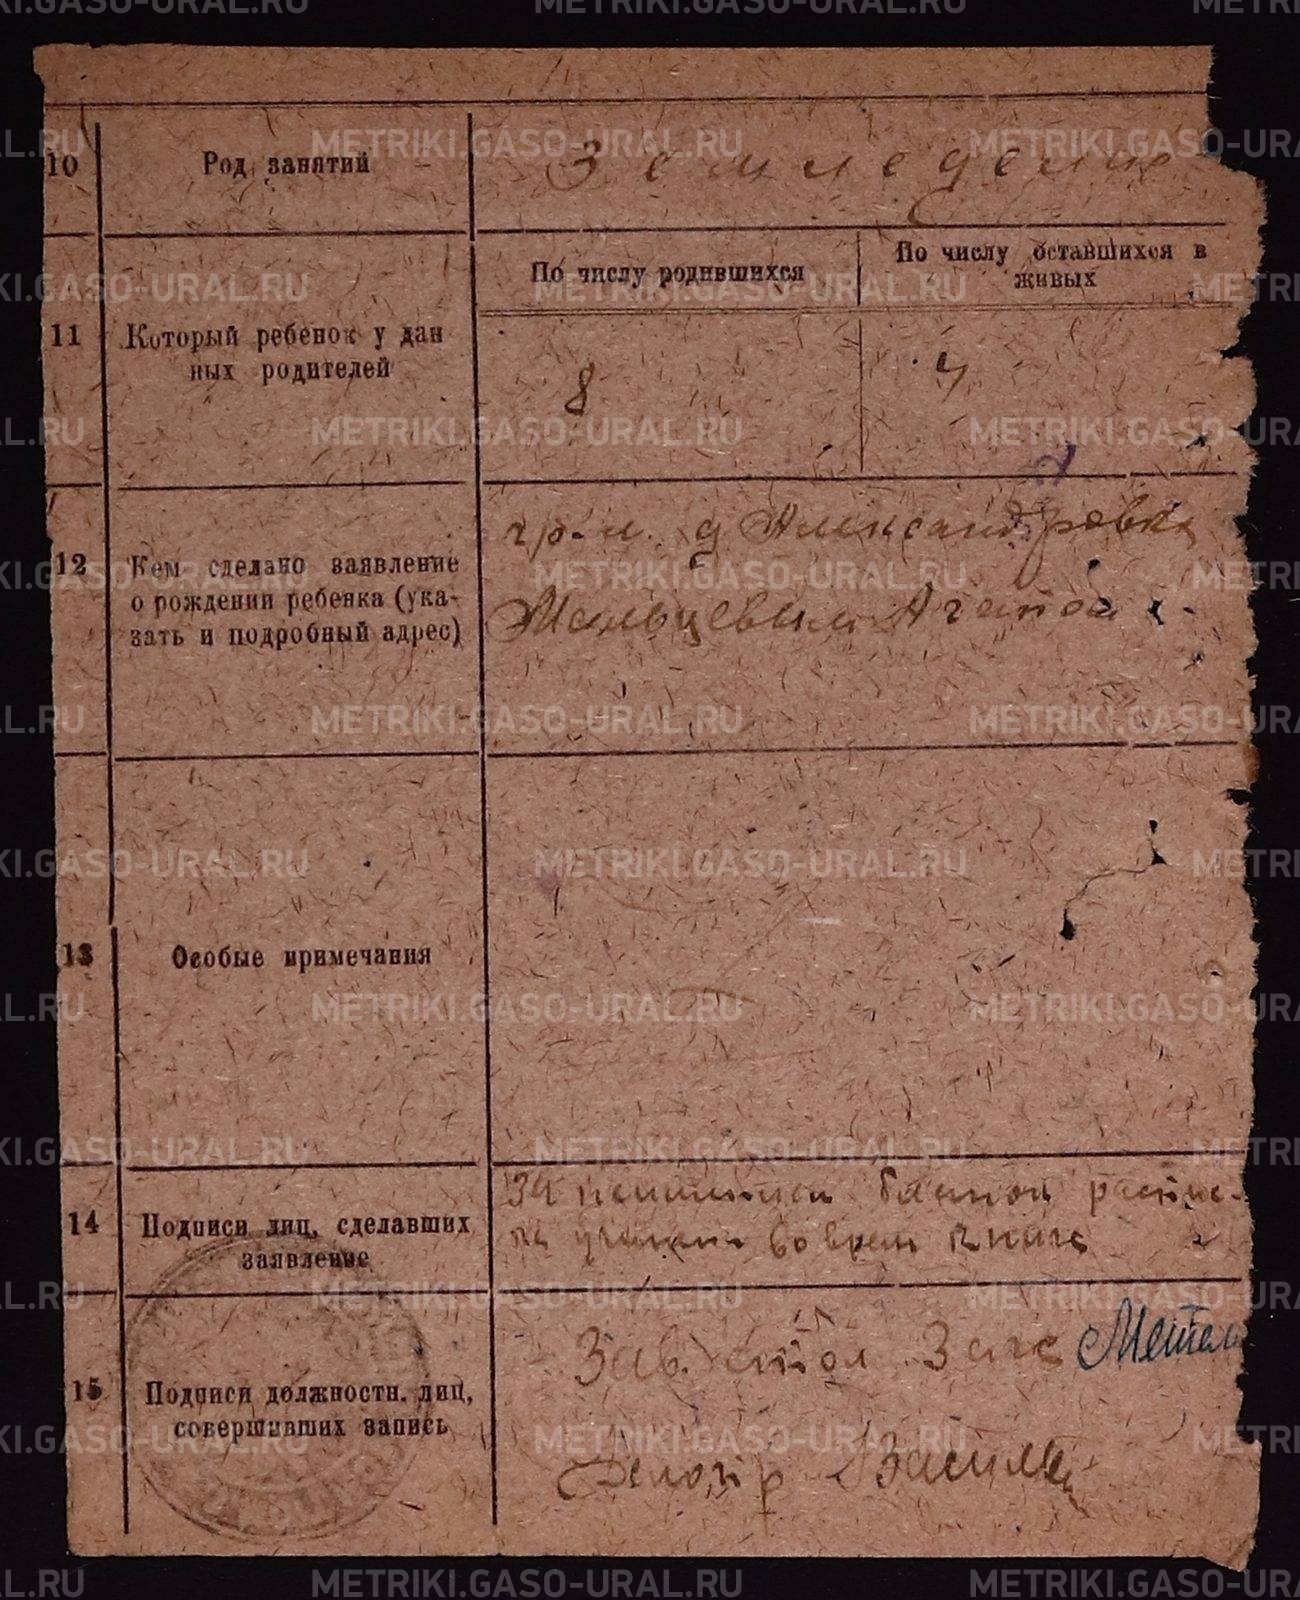 10 Род занятий Земледелие
По числу родившихся
По числу оставшихся в
живых
11 Который ребенок у дан
ных родителей
8
4
12 Кем сделано заявление
о рождении ребенка (ука-
зать и подробный адрес)
гр-м. д Александровка
Мальцевым Агапом
13 Особые примечания
14 Подписи лиц, сделавших
заявление
во врем книге
15 Подписи должностн. лиц,
совершивших запись
Зав. стол Загс
Делопр
METRIKI.GASO-URAL.RU